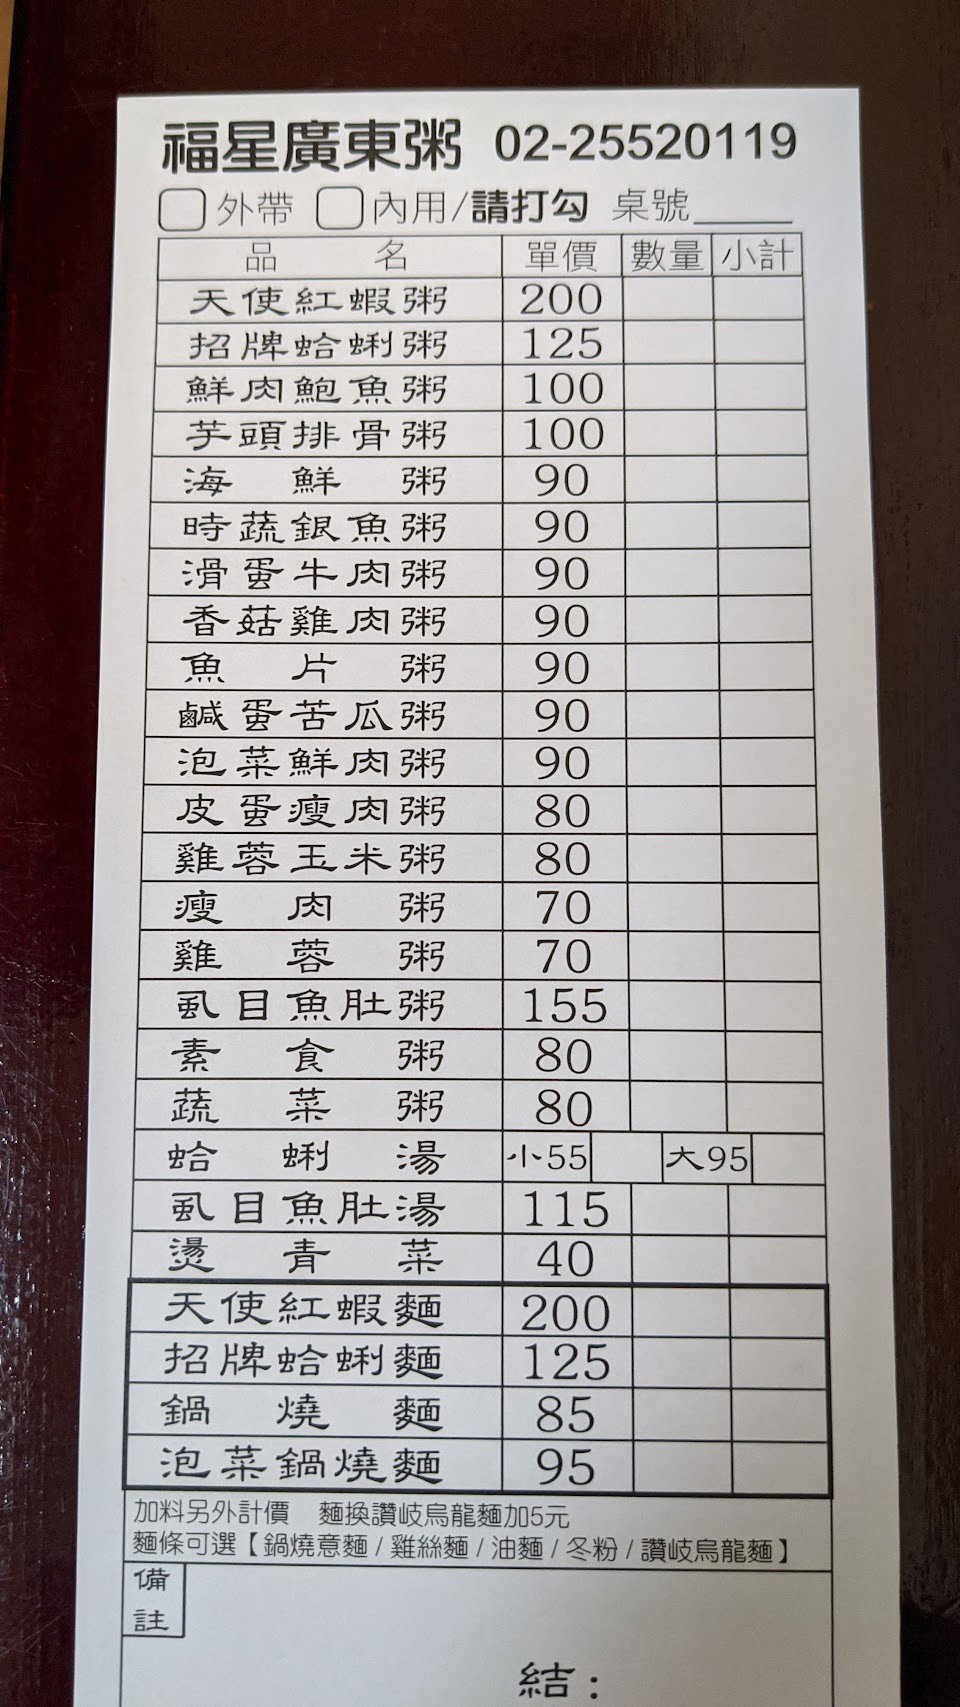 福星廣東粥 02-25520119
外帶 內用/請打勾 桌號
品名 單價 數量 小計
天使紅蝦粥 200
招牌蛤蜊粥 125
鮮肉鮑魚粥 100
芋頭排骨粥 100
海鮮粥 90
時蔬銀魚粥 90
滑蛋牛肉粥 90
香菇雞肉粥 90
魚片粥 90
鹹蛋苦瓜粥 90
泡菜鮮肉粥 90
皮蛋瘦肉粥 80
雞蓉玉米粥 80
瘦肉粥 70
雞蓉粥 70
虱目魚肚粥 155
素食粥 80
蔬菜粥 80
蛤蜊湯 小55 大95
虱目魚肚湯 115
燙青菜 40
天使紅蝦麵 200
招牌蛤蜊麵 125
鍋燒麵 85
泡菜鍋燒麵 95
加料另外計價 麵換讚岐烏龍麵加5元
麵條可選【鍋燒意麵/雞絲麵/油麵/冬粉/讚岐烏龍麵】
備註
結: